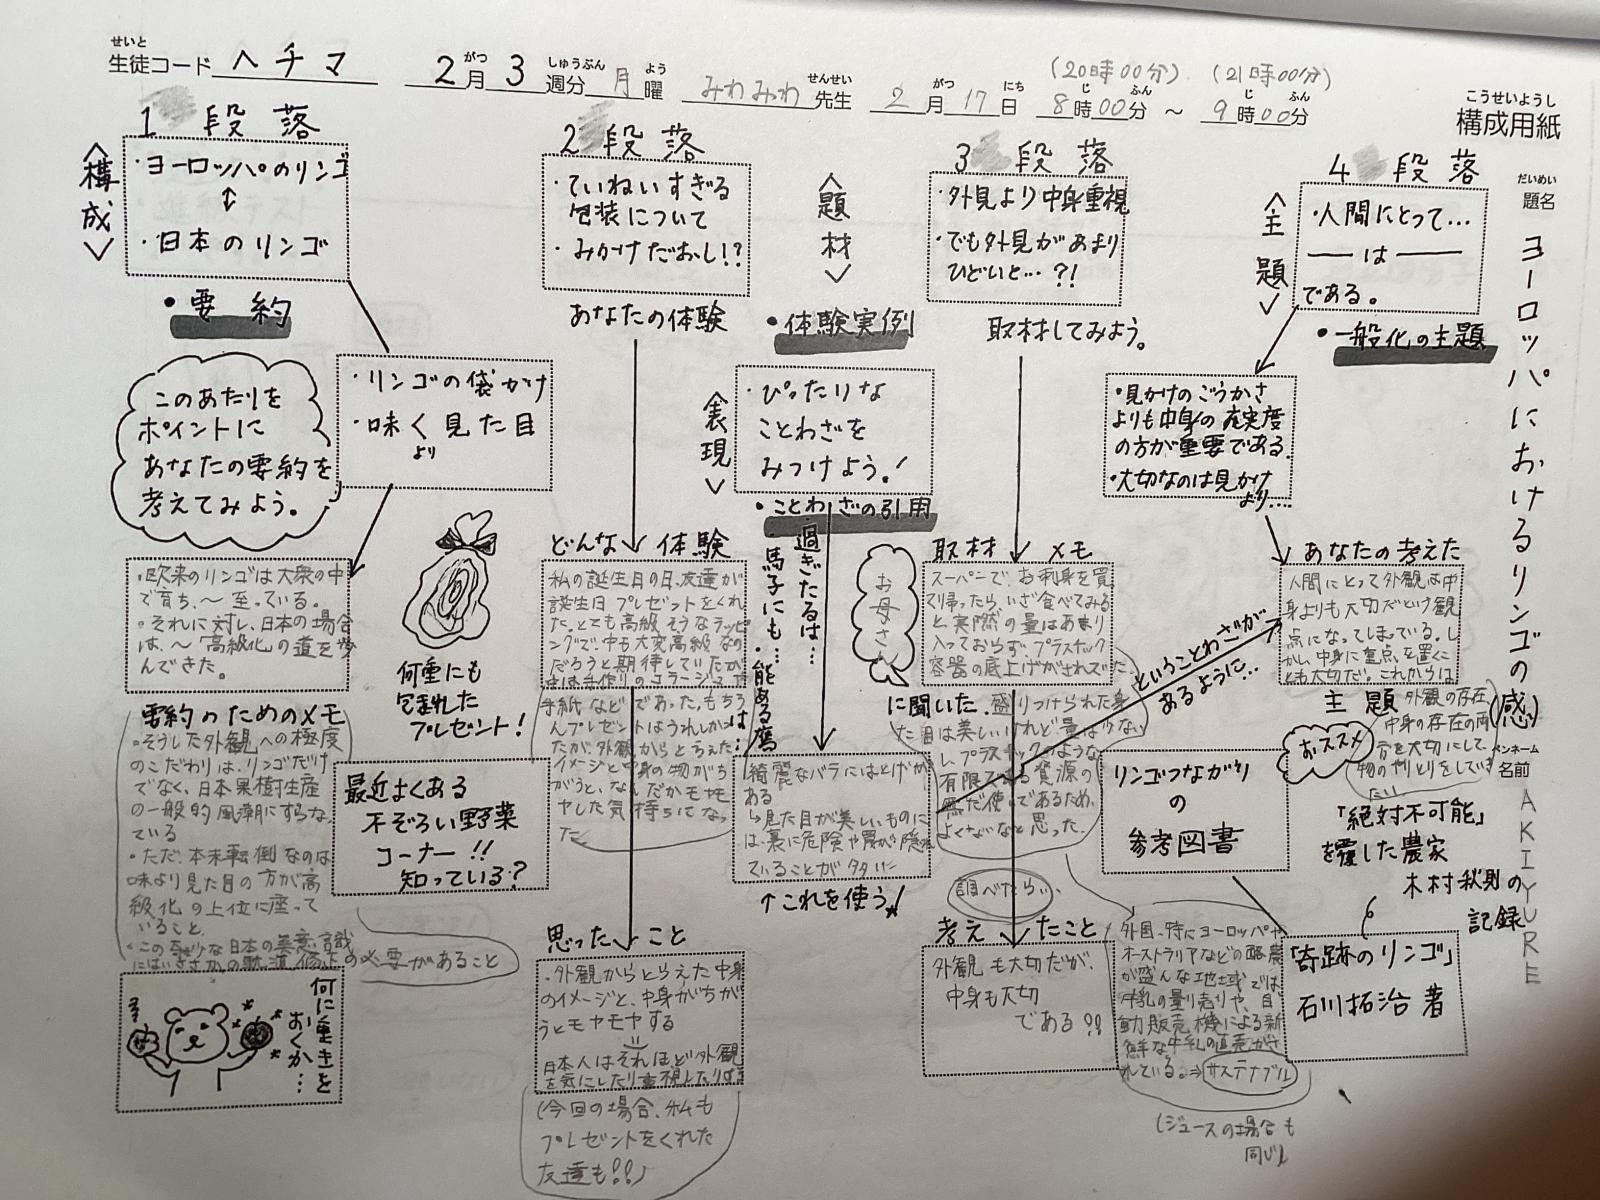 せいと
生徒コード ヘチマ
2月 3週分 月曜
がつ しゅうぶん よう
みわみわ 先生
せんせい
2月17日 8時00分 ～ 9時00分
がつ にち じ ふん じ ふん
(20時00分) (21時00分)
こうせいようし
構成用紙
だいめい
題名
ヨーロッパにおけるリンゴの(感)
ペンネーム
名前
AKIYURE
1 段落
〈構成〉
・ヨーロッパのリンゴ
↕
・日本のリンゴ
・要約
・リンゴの袋がけ
・味く見た目
より
このあたりを
ポイントに
あなたの要約を
考えてみよう。
・欧米のリンゴは大衆の中
で育ち、～至っている。
・それに対し、日本の場合
は、～高級化の道を歩
んできた。
要約のためのメモ
・そうした外観への極度
のこだわりは、リンゴだけ
でなく、日本果樹生産
の一般的風潮にすらなっ
ている
・ただ、本末転倒なのは
味より見た目の方が高
級化の上位に座って
いること、
・この奇妙な日本の美意識
にはいささかの軌道修正の必要があること
何に重きを
おくか…
何重にも
包まれた
プレゼント！
最近よくある
不ぞろい野菜
コーナー!!
知っている？
2 段落
・ていねいすぎる
包装について
・みかけだおし!?
あなたの体験
どんな体験
私の誕生日の日、友達が
誕生日プレゼントをくれ
た。とても高級そうなラッピ
ングで、中も大変高級なの
だろうと期待していたが
中は手作りのコラージュや
手紙などであった。もちろ
んプレゼントはうれしかっ
たが、外観からとらえた
イメージと中身の物がち
がうと、なんだかモヤモ
ヤした気持ちになっ
た
思ったこと
・外観からとらえた中身
のイメージと、中身がちが
うとモヤモヤする
=
日本人はそれほど外観
を気にしたり重視したりする
(今回の場合、私も
プレゼントをくれた
友達も!!)
〈題材〉
・体験実例
〈表現〉
・ぴったりな
ことわざを
みつけよう！
・ことわざの引用
過ぎたるは…
馬子にも…
能ある鷹は…
綺麗なバラにはとげが
ある
↳見た目が美しいものに
は、裏に危険や罠が隠れ
ていることが多い
↑これを使う！
3 段落
・外見より中身重視
・でも外見があまり
ひどいと…?!
取材してみよう。
取材メモ
お母さん
に聞いた。
スーパーで、お刺身を買っ
て帰ったら、いざ食べてみる
と実際の量はあまり
入っておらず、プラスチック
容器の底上げがされていた
盛りつけられた見
た目は美しいけれど量は少ない
し、プラスチックのような
有限である資源の
無だ使いであるため、
よくないなと思った。
調べたら…
考えたこと
外観も大切だが、
中身も大切
である!?
外国、特にヨーロッパや
オーストラリアなどの酪農
が盛んな地域では
牛乳の量り売りや、自
動販売機による新
鮮な牛乳の直売がさ
れている。⇒サステナブル
(ジュースの場合も
同じ)
ということわざが
あるように…
4 段落
〈主題〉
・人間にとって…
――は――
である。
・一般化の主題
・見かけのごうかさ
よりも中身の充実度
の方が重要である。
・大切なのは見かけ
より….
あなたの考えた
人間にとって外観は中
身よりも大切だという観
点になってしまっている。し
かし、中身に重点を置くこ
とも大切だ。これからは
主題
外観の存在、
中身の存在の両
方を大切にして
物のやりとりをしていき
たい
おススメ
リンゴつながり
の
参考図書
「絶対不可能」
を覆した農家
木村秋則の
記録
「奇跡のリンゴ」
石川拓治 著